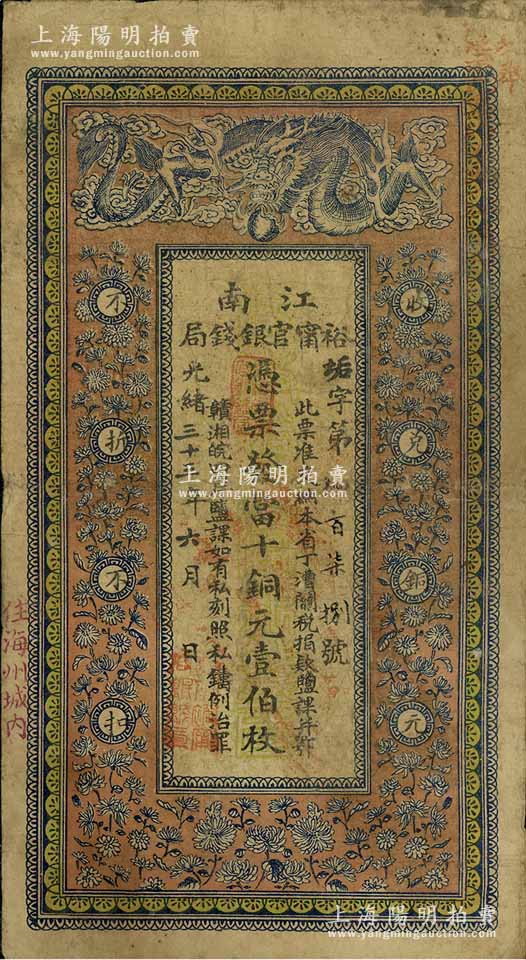 上海陽明拍賣
www.yangmingauction.com
江南
裕甯官銀錢局
垢字第 百柒捌號
此票准 本省丁漕關稅捐款鹽課并鄂
憑票發當十銅元壹佰枚
贛湘皖 鹽課如有私刻照私鑄例治罪
光緒三十 年六月 日
收兌銅元
不折不扣
住海州城内
上海陽明拍賣
www.yangmingauction.com
上海陽明拍賣
www.yangmingauction.com